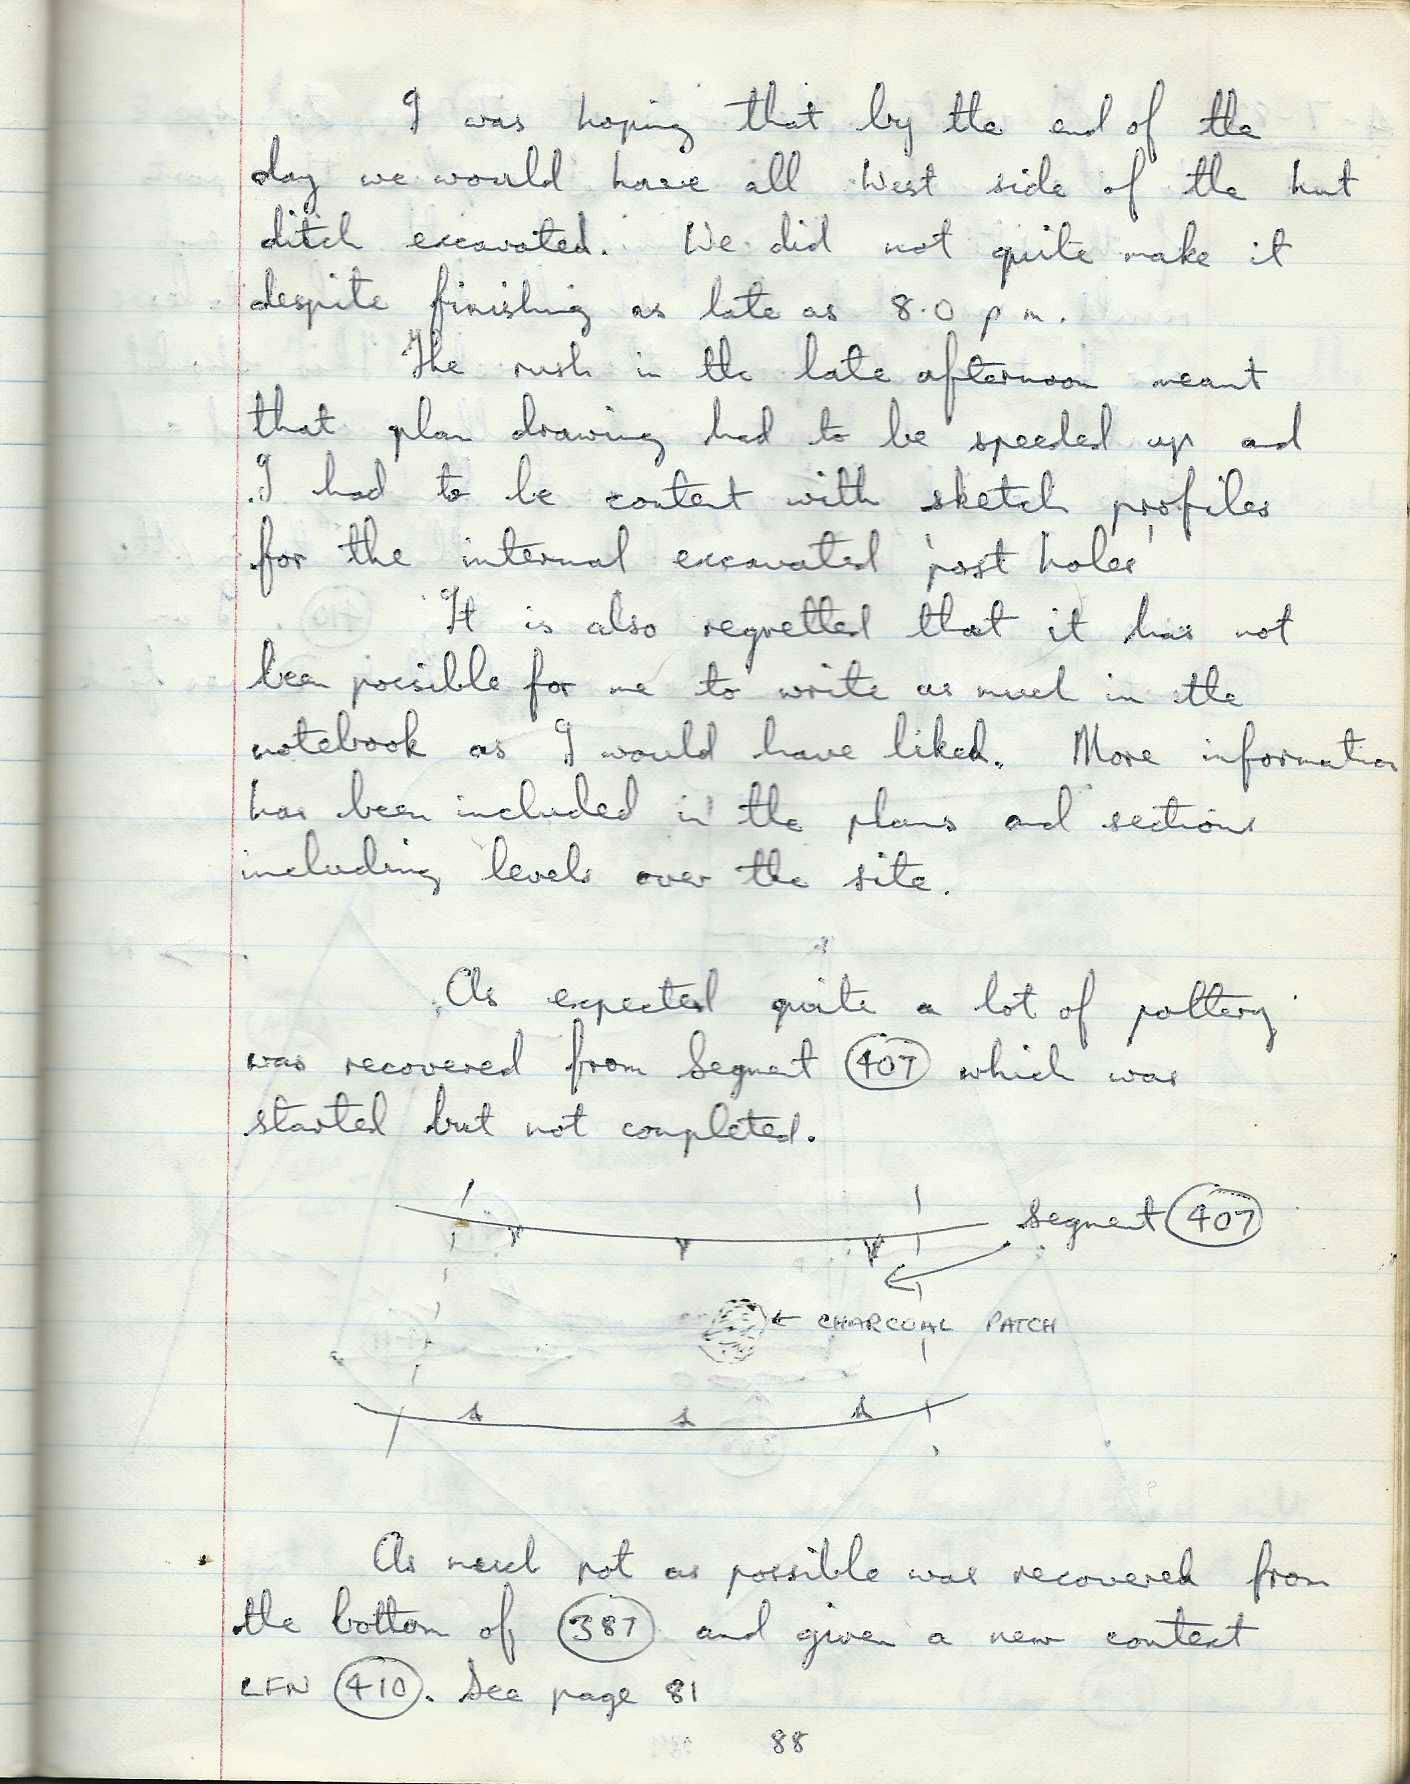 I was hoping that by the end of the
day we would have all West side of the hut
ditch excavated. We did not quite make it
despite finishing as late as 8.0 pm.
The rush in the late afternoon meant
that plan drawing had to be speeded up and
I had to be content with sketch profiles
for the internal excavated 'post holes'
It is also regretted that it has not
been possible for me to write as much in the
notebook as I would have liked. More information
has been included in the plans and sections
including levels over the site.
As expected quite a lot of pottery
was recovered from Segment 407 which was
started but not completed.
Segment 407
← CHARCOAL PATCH
As much pot as possible was recovered from
the bottom of 387 and given a new context
LFN 410. See page 81
88